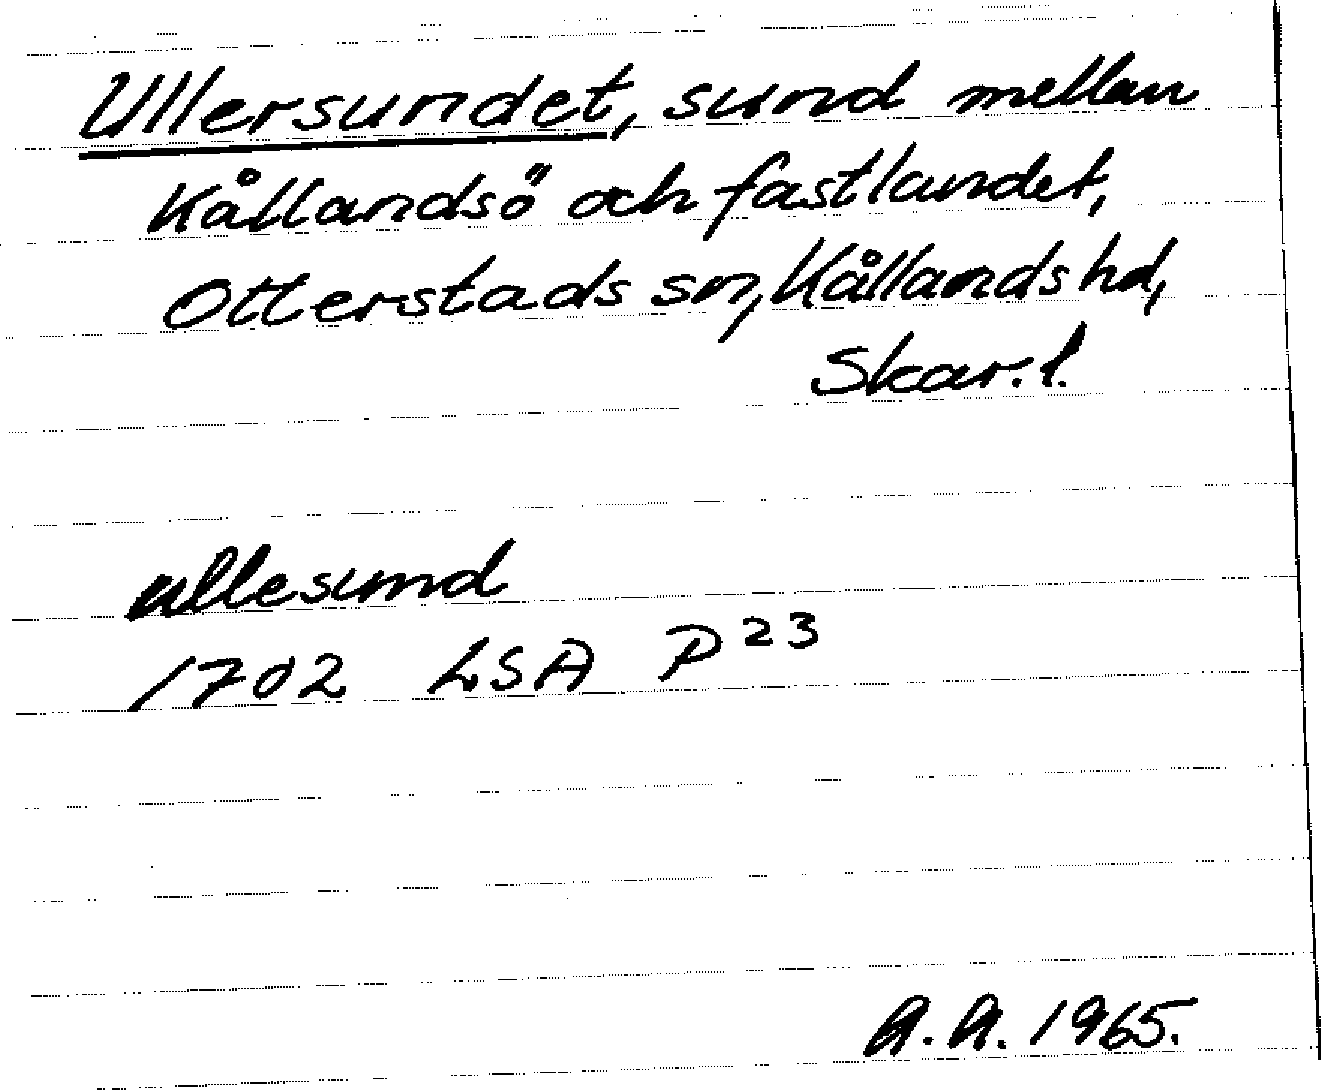 Ullersundet, sund mellan
Kållandsö och fastlandet,
Otterstads sn, Kållands hd,
Skar. l.
ullesund
1702 LSA P 23
A.A. 1965.